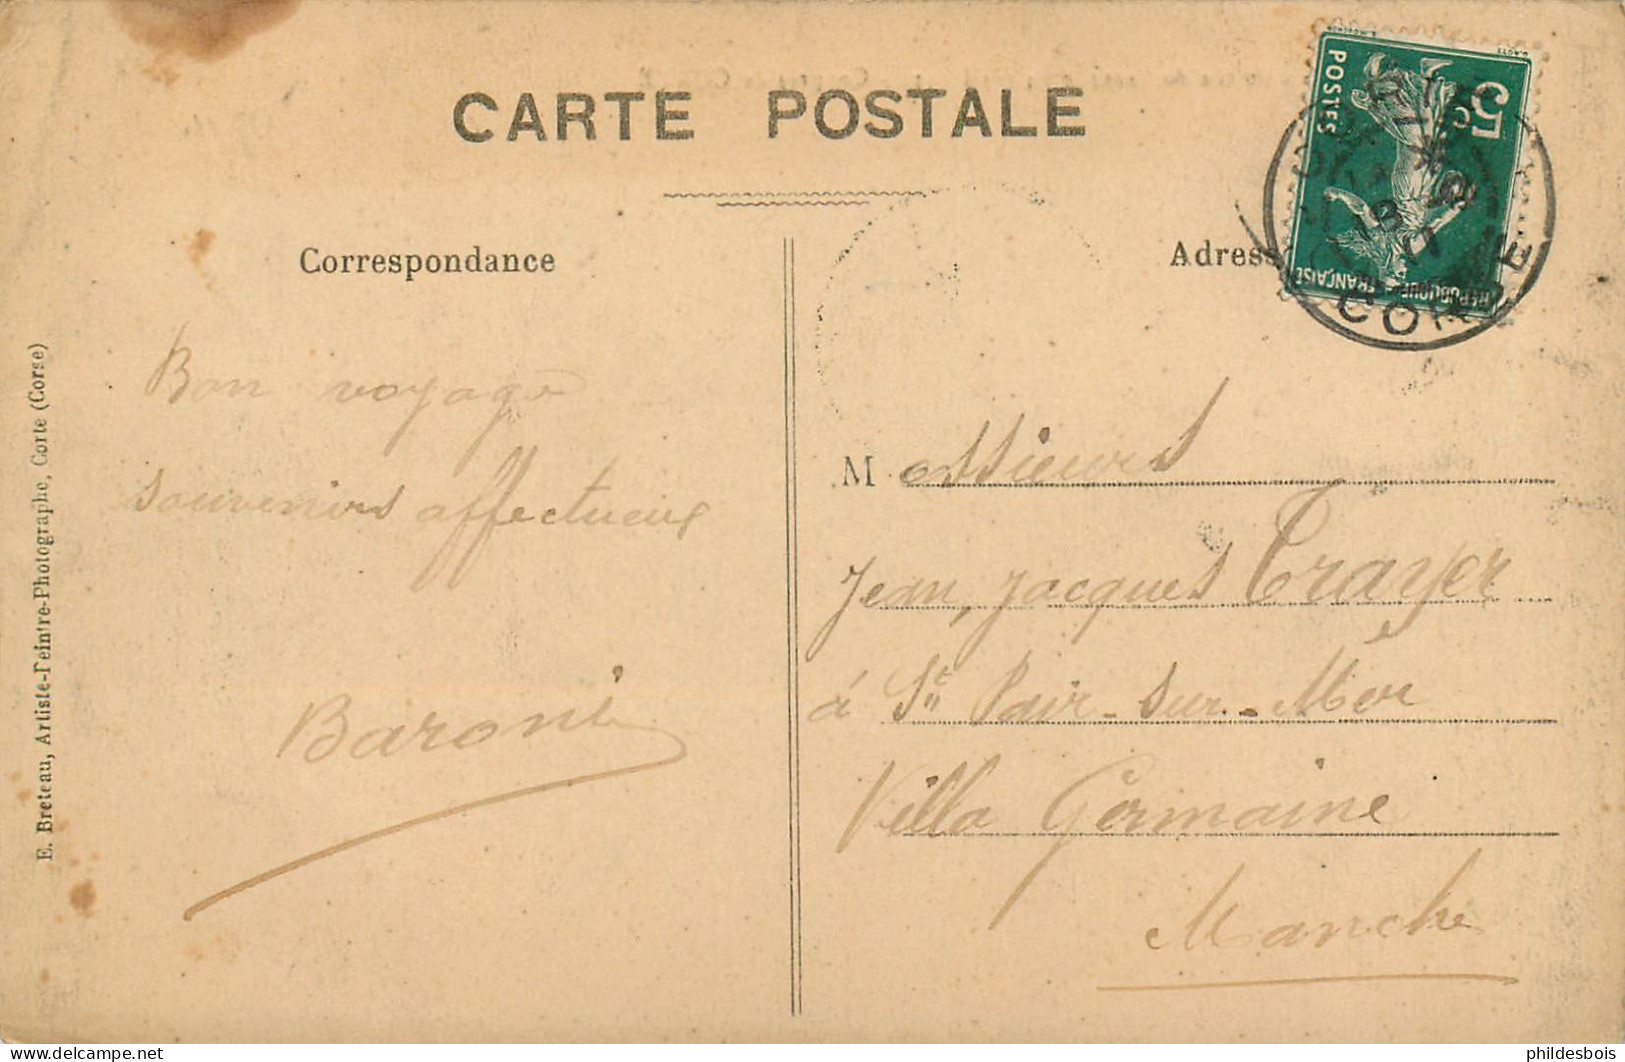 CARTE POSTALE
Correspondance
Adresse
5c
POSTES
RÉPUBLIQUE FRANÇAISE
CORSE
Bon voyage
souvenirs affectueux
Baroni
Messieurs
Jean, Jacques Trayer
à St Pair-sur-Mer
Villa Germaine
Manche
E. Breteau, Artiste-Peintre-Photographe, Corte (Corse)
delcampe.net
phildesbois